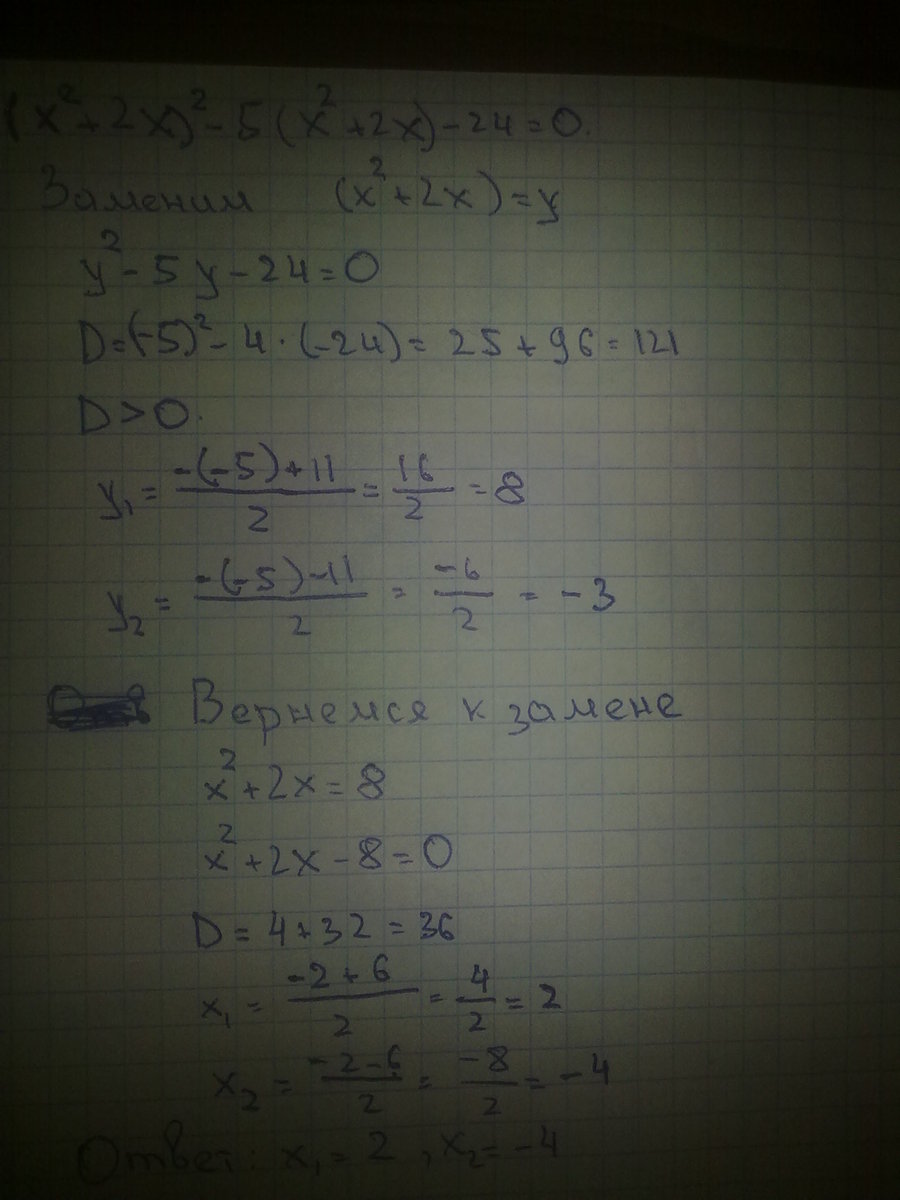 (x²+2x)²-5(x²+2x)-24=0.
Заменим (x²+2x)=y
y²-5y-24=0
D=(-5)²-4·(-24)=25+96=121
D>0.
y₁=(-(-5)+11)/2=16/2=8
y₂=(-(-5)-11)/2=-6/2=-3
Вернемся к замене
x²+2x=8
x²+2x-8=0
D=4+32=36
x₁=(-2+6)/2=4/2=2
x₂=(-2-6)/2=-8/2=-4
Ответ: x₁=2, x₂=-4